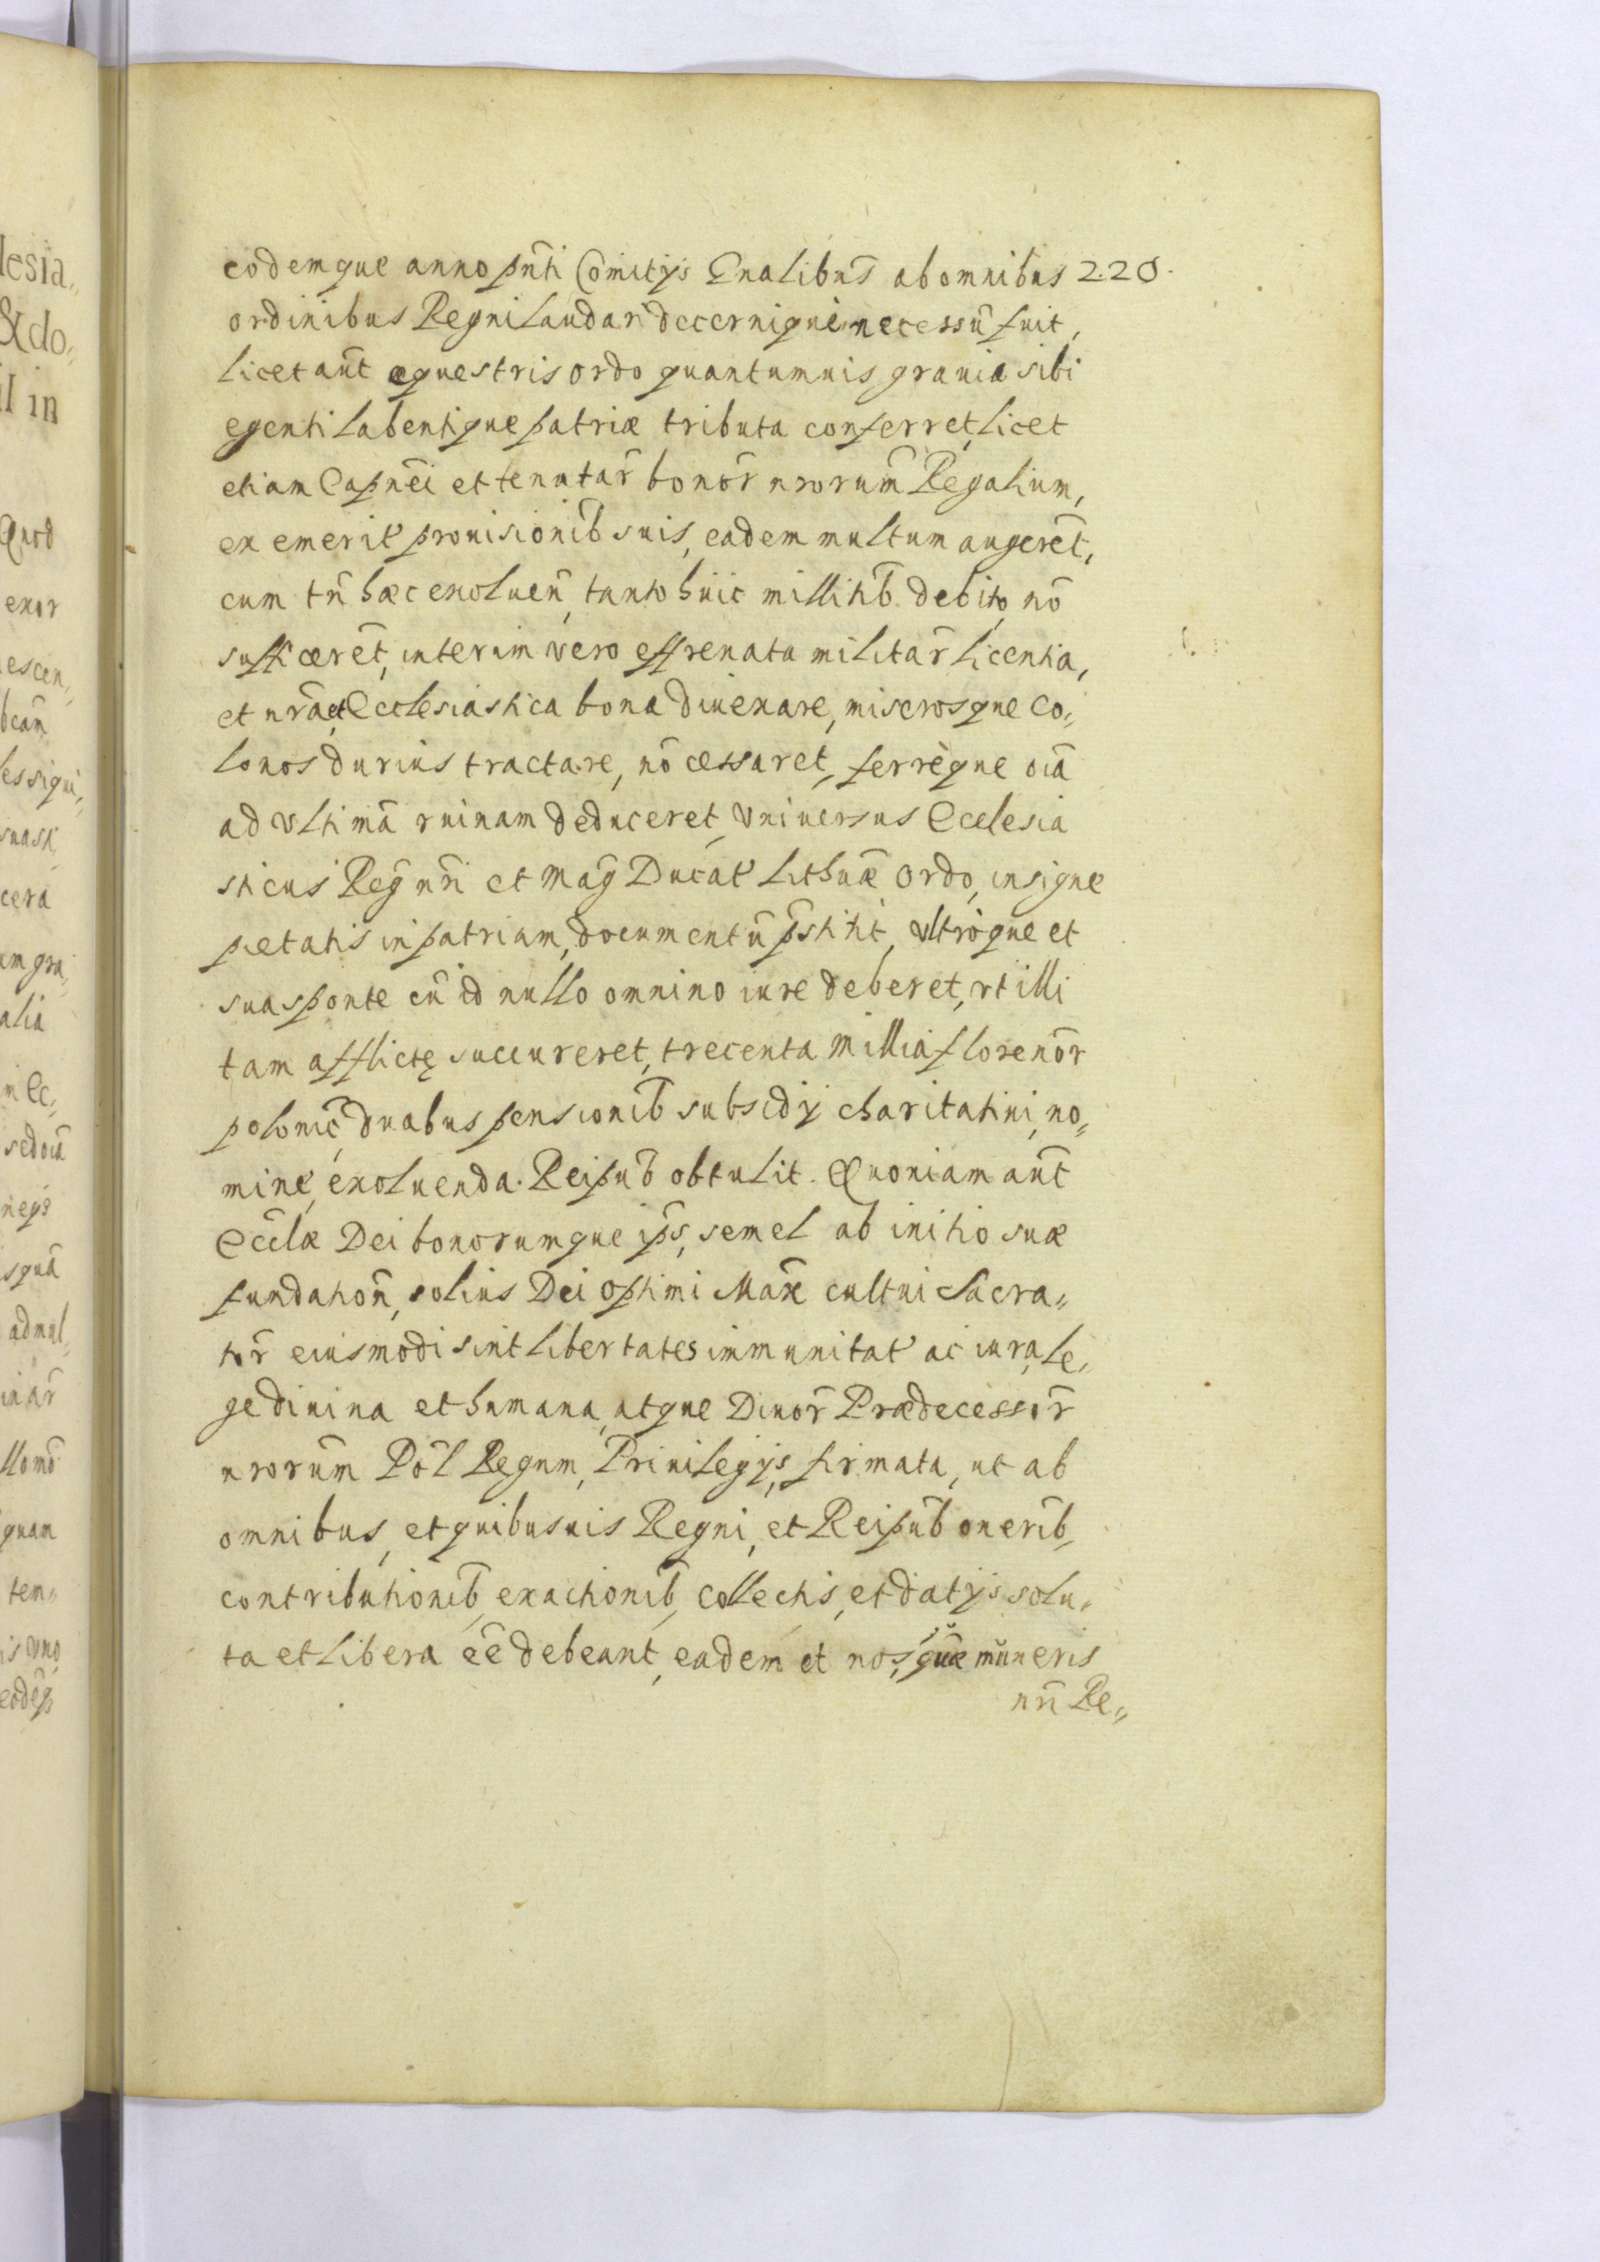 eodemque anno pñti Comitijs Gñalibus ab omnibus 220.
ordinibus Regni laudari decernique necessũ fuit,
licet aũt equestris ordo quantumuis grauia sibi
egenti labentique patriæ tributa conferret, licet
etiam Capnẽi et tenutar̃ bonor̃ nrorum̃ Regalium,
ex emerit' prouisionib̃ suis, eadem multum augerẽt,
cum tñ hæc exoluẽn, tanto huic millitib̃. debito nõ
sufficerẽt, interim vero effrenata militar̃ licentia,
et nrã, et Ecclesiastica bona diuexare, miserosque Co,,
lonos durius tractare, nõ cessaret, ferrèque oĩa
ad vltimã ruinam deduceret, vniuersus Ecclesia
sticus Reg̃ nrĩ et Mag̃ Ducat' Lithuæ̃ Ordo, insigne
pietatis in patriam, documentũ p̃stitit, vltròque et
sua sponte cũ id nullo omnino iure deberet, vt illi
tam afflictę succureret, trecenta Millia florenor̃
polonic̃ duabus pensionib̃ subsidij charitatiui, no,,
mine, exoluenda. Reipub̃ obtulit. Quoniam aũt
Eccl̃æ Dei bonorumque ip̃s, semel ab initio suæ
fundatioñ, solius Dei Optimi Max̃ cultui Sacra,,
tor̃ eiusmodi sint libertates immunitat' ac iura, le,,
ge diuina et humana, atque Diuor̃ Prædecessor̃
nrorum̃ Pol̃ Regum, Priuilegijs, firmata, ut ab
omnibus, et quibusuis Regni, et Reipub̃ onerib̃,
contributionib̃, exactionib̃, collectis, et datijs solu,,
ta et libera eẽ debeant, eadem et nos, quæ muneris
nrĩ Re,,
lesia,,
&do,,
il in
Quod
exor
escen,,
suasi
cera
alia
n Ec,,
sed oĩa
squã
ad nul
quam
ten,,
is vno